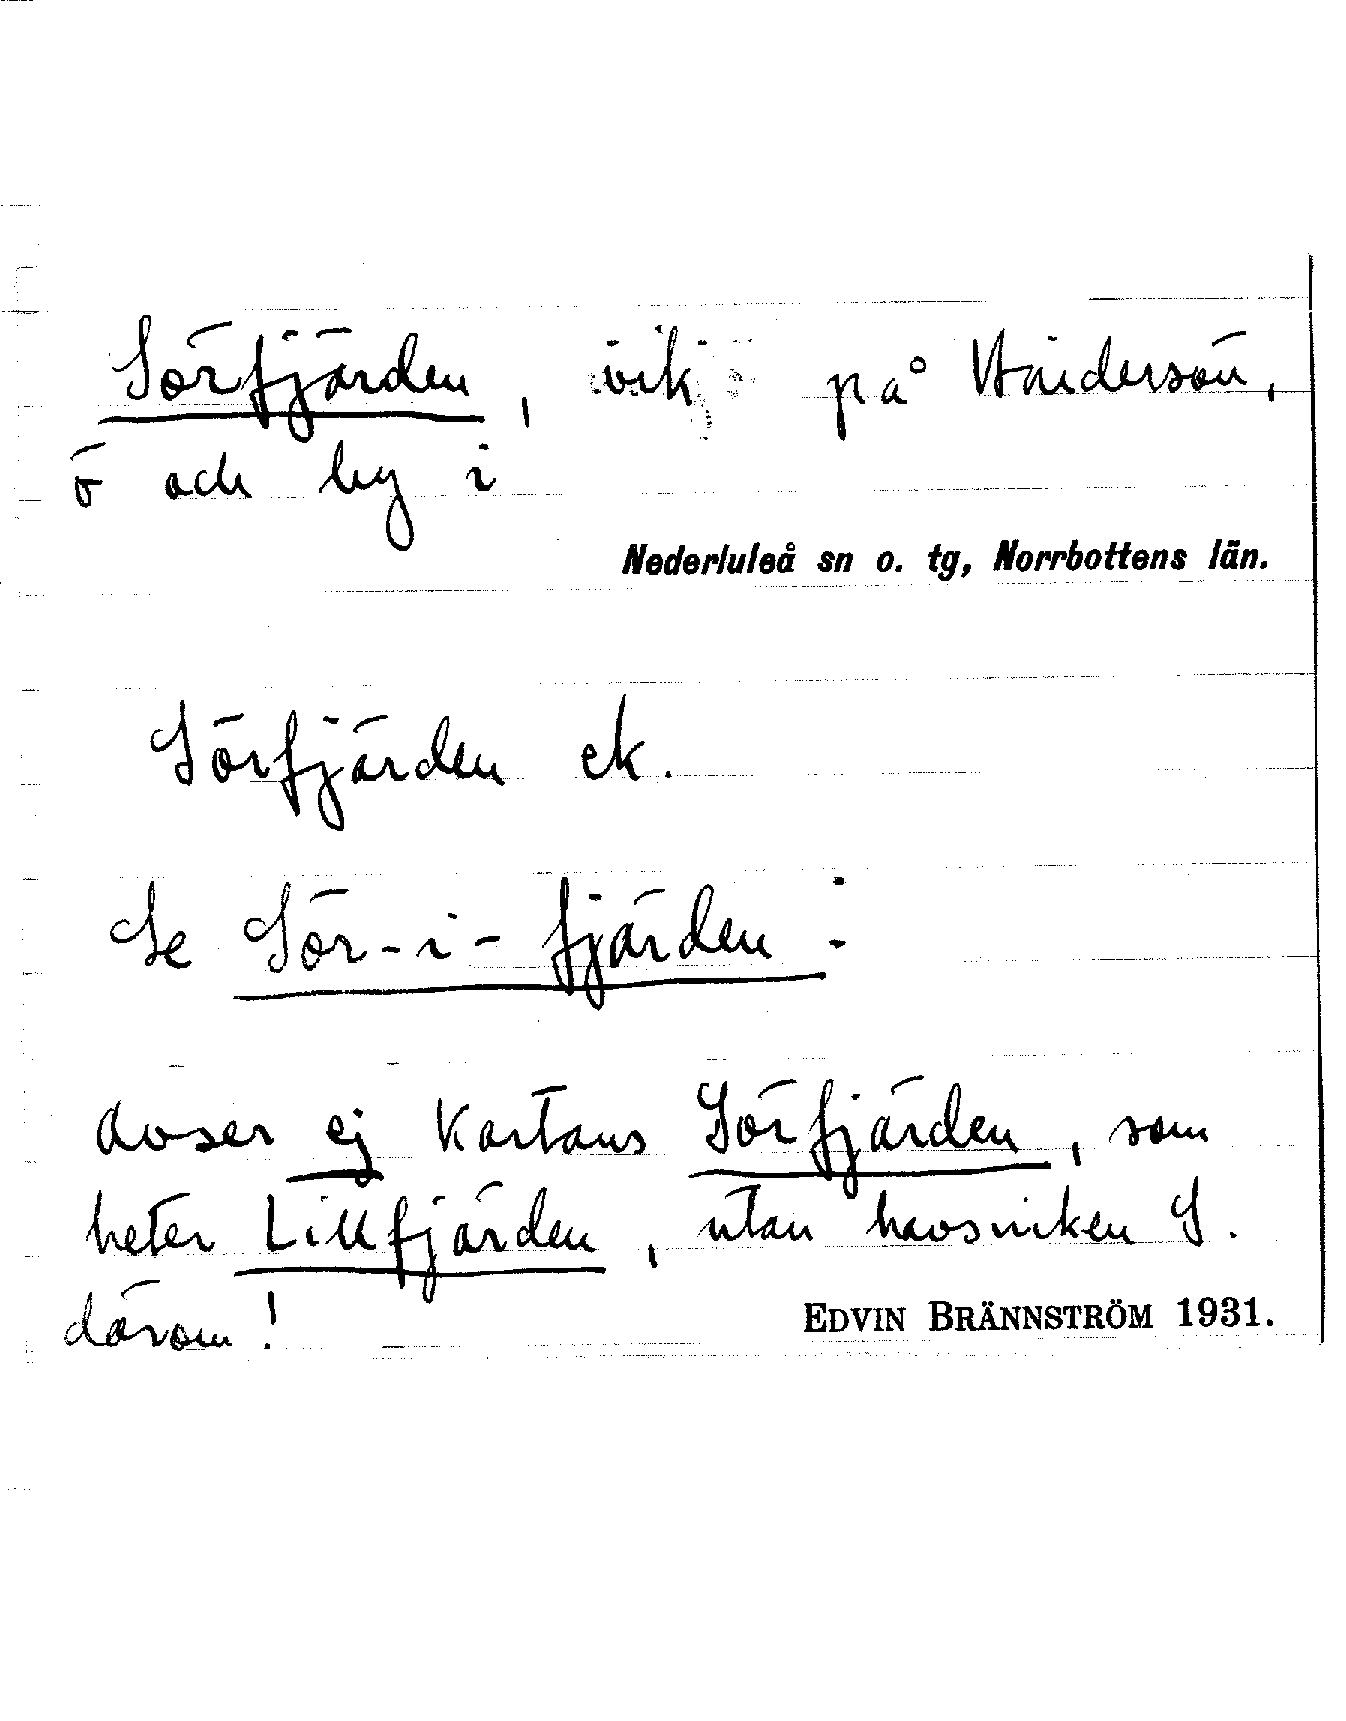 Sörfjärden, vik på Hindersön,
ö och by i
Nederluleå sn o. tg, Norrbottens län.
Sörfjärden ek.
Se Sör-i-fjärden:
Avser ej kartans Sörfjärden, som
heter Lillfjärden, utan havsviken S.
därom!
EDVIN BRÄNNSTRÖM 1931.